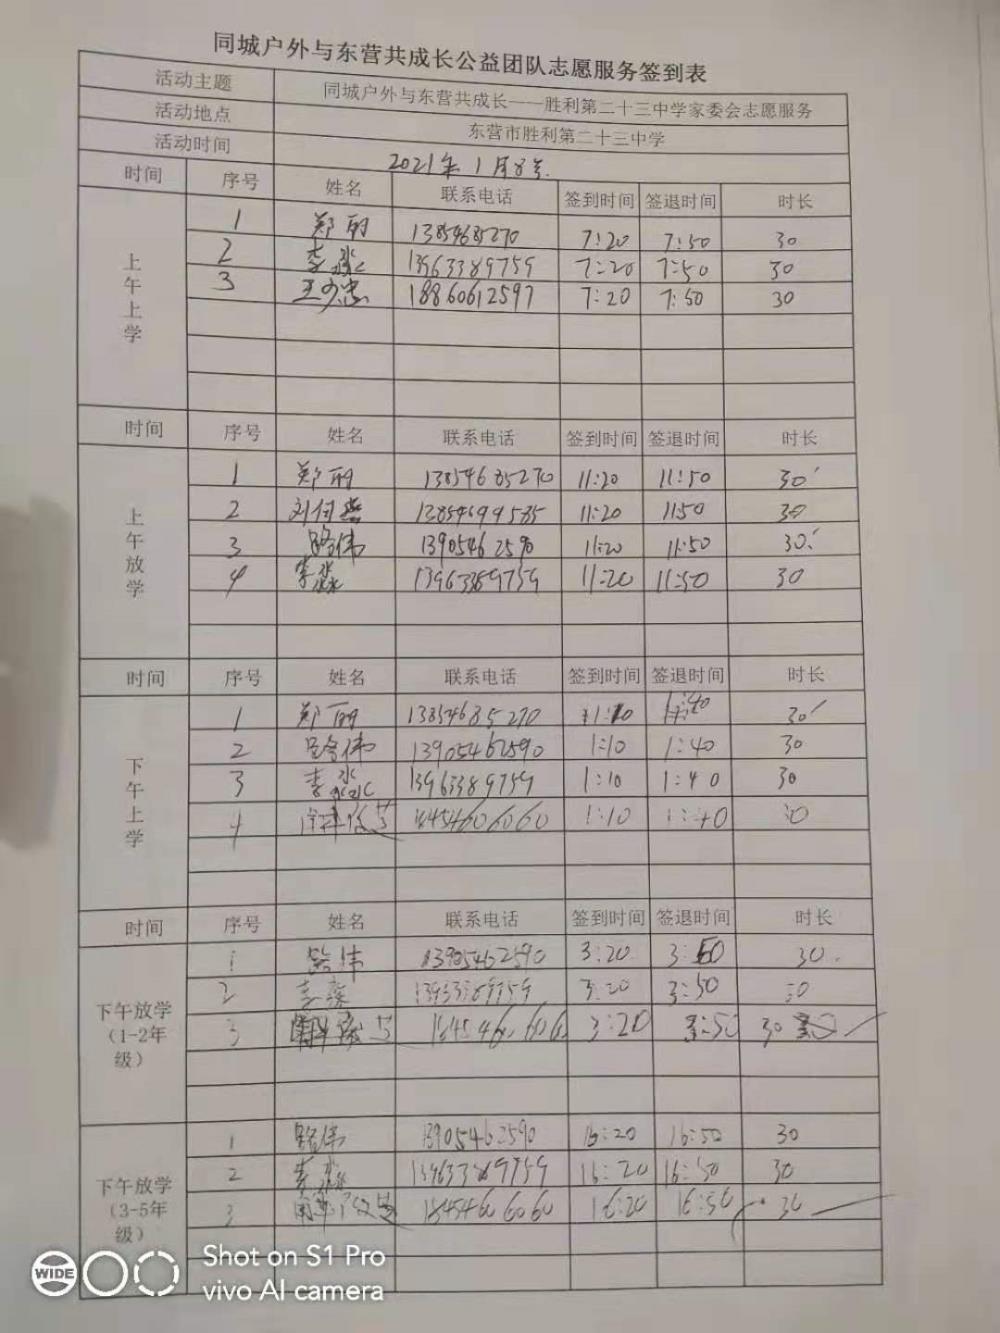 同城户外与东营共成长公益团队志愿服务签到表
活动主题 同城户外与东营共成长——胜利第二十三中学家委会志愿服务
活动地点 东营市胜利第二十三中学
活动时间 2021年1月8号.
时间 序号 姓名 联系电话 签到时间 签退时间 时长
上午上学
1 郑丽 13854685270 7:20 7:50 30
2 李淼 13963389759 7:20 7:50 30
3 王少忠 18860612597 7:20 7:50 30
时间 序号 姓名 联系电话 签到时间 签退时间 时长
上午放学
1 郑丽 13854685270 11:20 11:50 30
2 刘 13854699585 11:20 11:50 30
3 路伟 13905462590 11:20 11:50 30
4 李淼 13963389759 11:20 11:50 30
时间 序号 姓名 联系电话 签到时间 签退时间 时长
下午上学
1 郑丽 13854685270 1:10 1:40 30
2 路伟 13905462590 1:10 1:40 30
3 李淼 13963389759 1:10 1:40 30
4 1:10 1:40 30
时间 序号 姓名 联系电话 签到时间 签退时间 时长
下午放学
(1-2年级)
1 路伟 13905462590 3:20 3:50 30
2 李淼 13963389759 3:20 3:50 30
3 3:20 3:50 30
下午放学
(3-5年级)
1 路伟 13905462590 16:20 16:50 30
2 李淼 13963389759 16:20 16:50 30
3 16:20 16:50 30
WIDE
Shot on S1 Pro
vivo AI camera